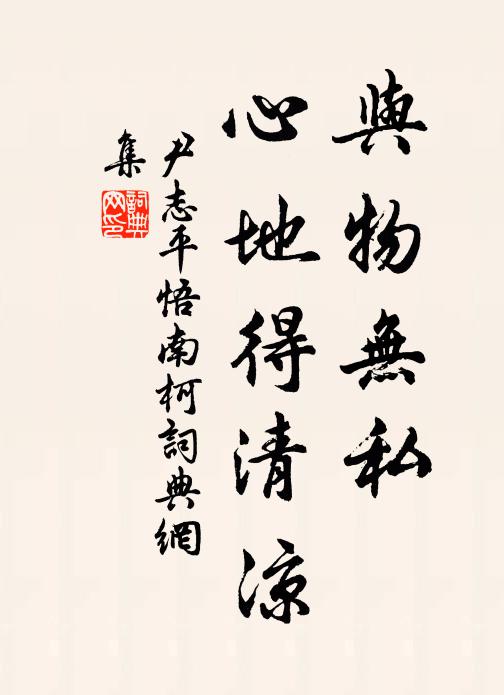 與物無私
心地得清涼
尹志平悟南柯詞典網
集
詞典
网印